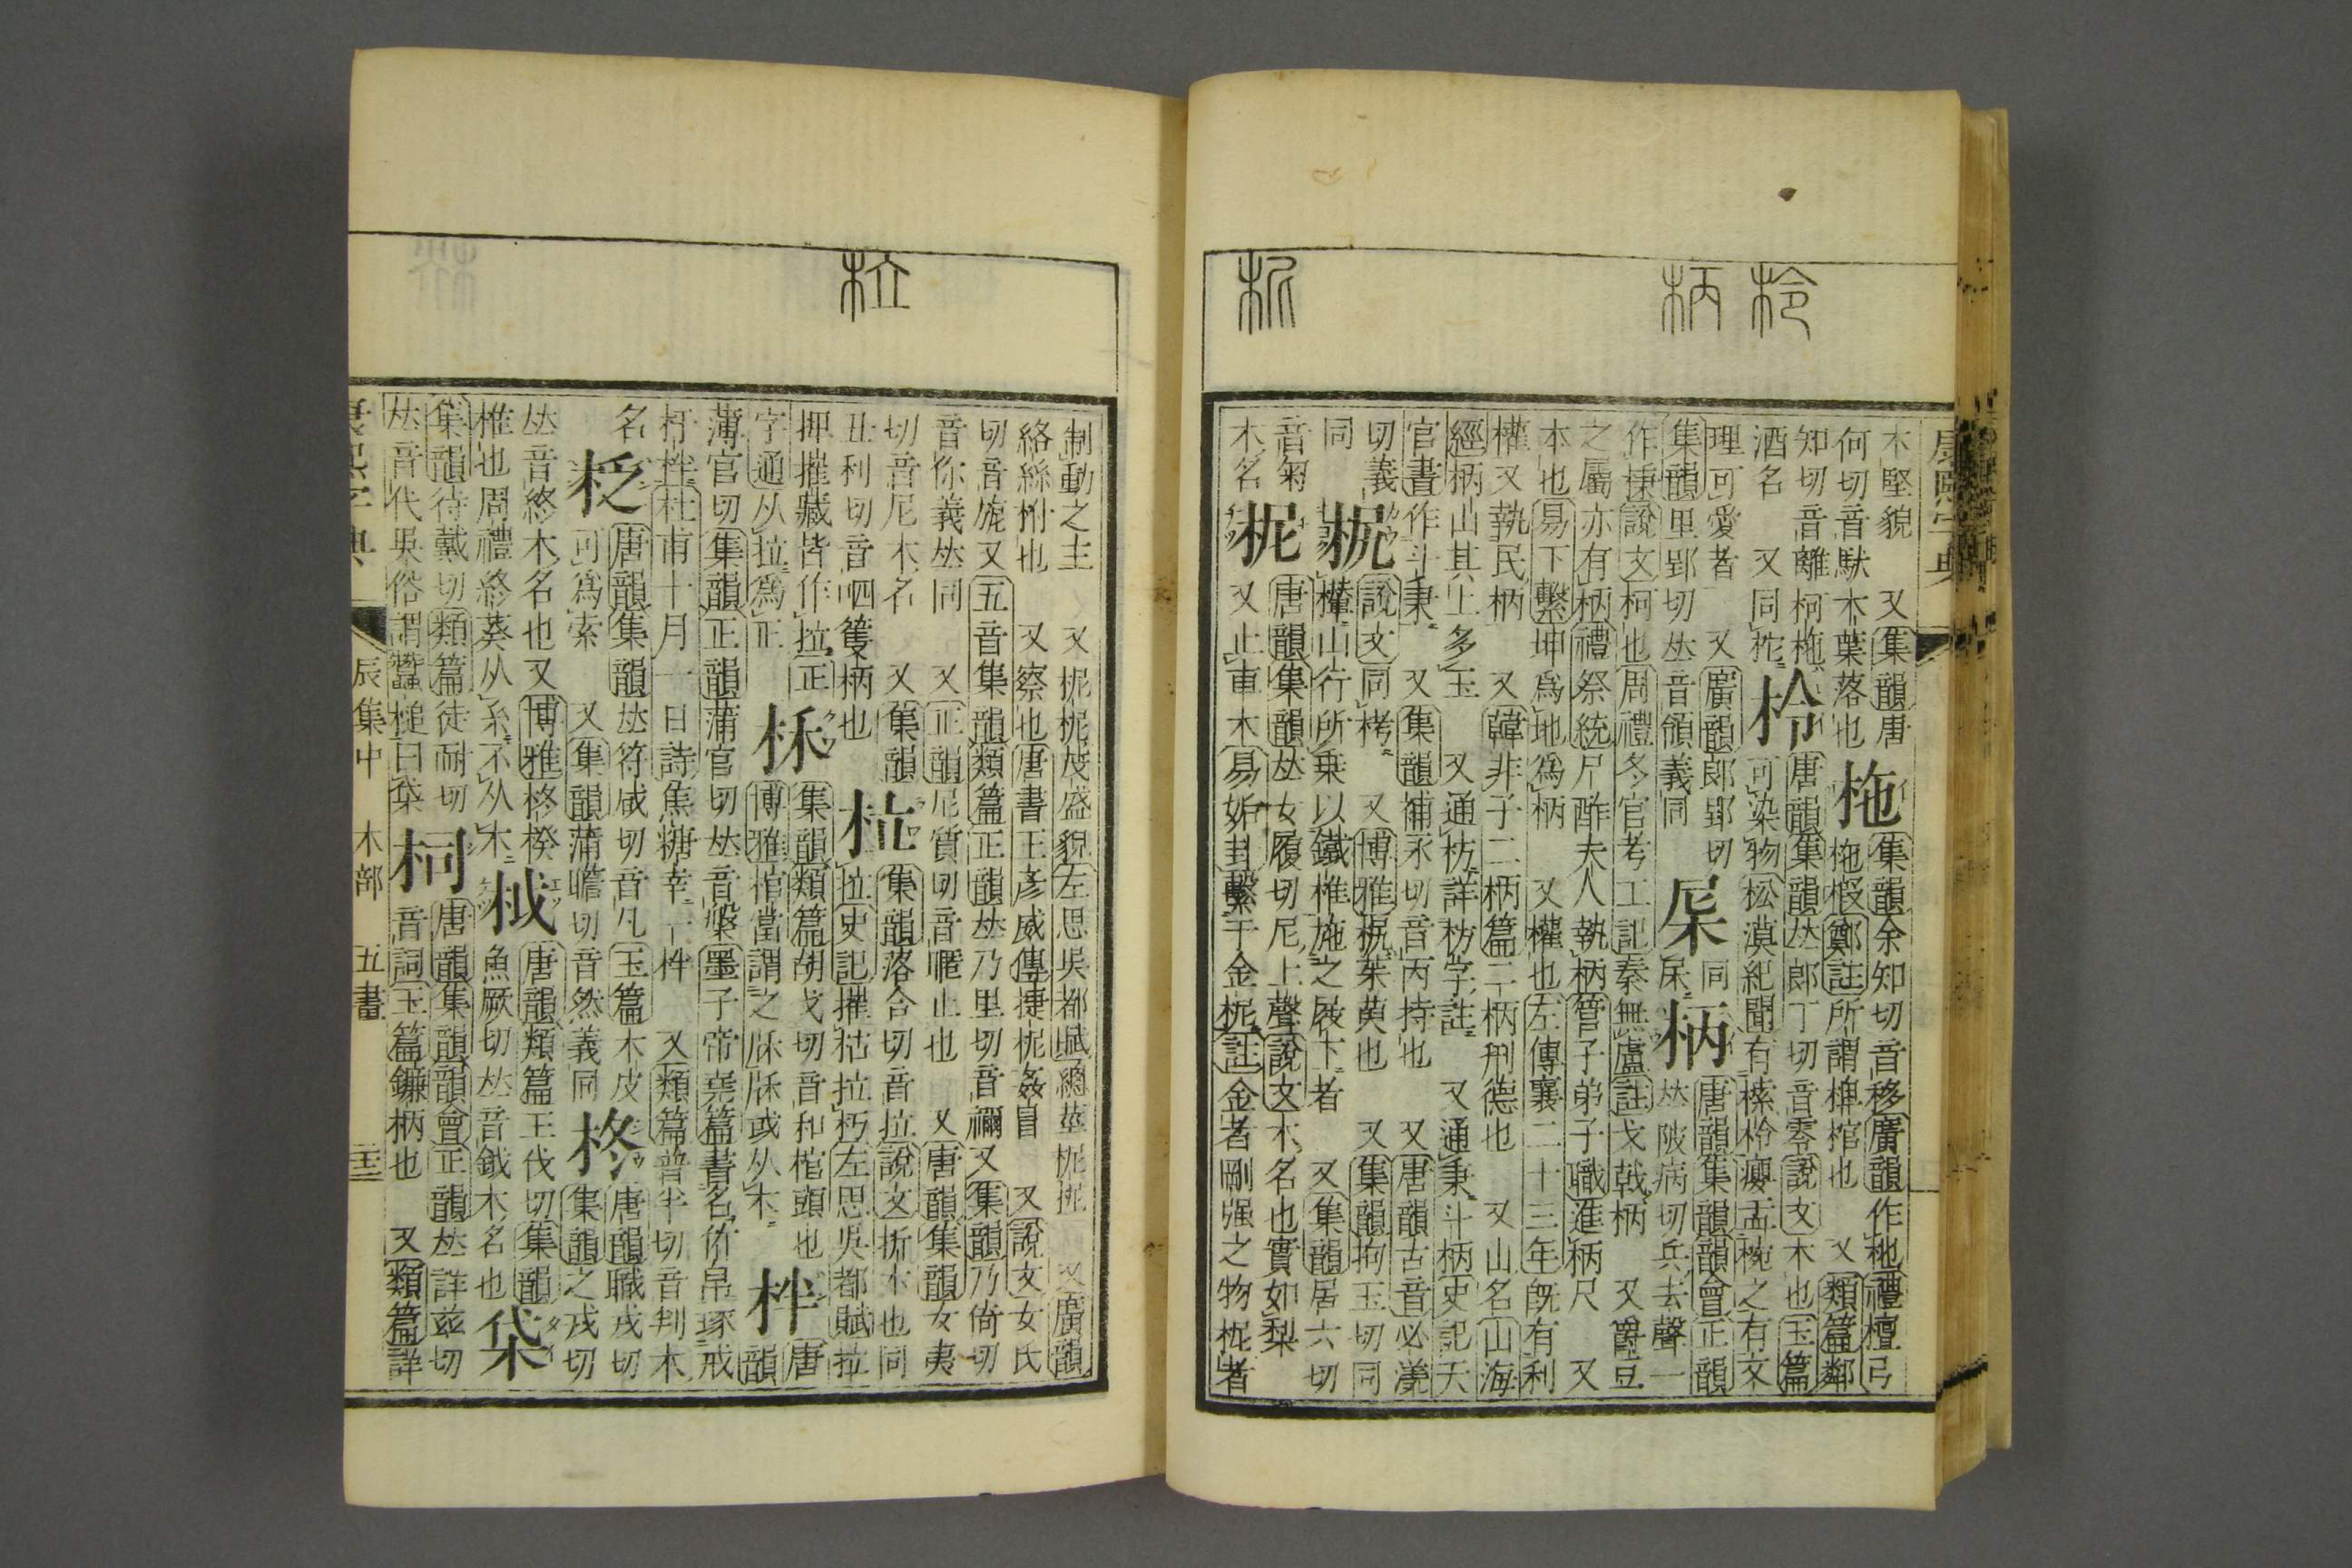 木堅貌　又集韻唐
何切音馱木葉落也
柂
集韻余知切音移廣韻作杝禮檀弓
柂椵鄭註所謂椑棺也　又類篇鄰
知切音離柯柂
酒名　又同柁
柃
唐韻集韻𠀤郎丁切音零說文木也玉篇
可染物松漠紀聞有榡柃癭盂椀之有文
理可愛者　又廣韻郎郢切
集韻里郢切𠀤音領義同
同
杘
柄
唐韻集韻韻會正韻
𠀤陂病切兵去聲一
作棅說文柯也周禮冬官考工記秦無廬註戈戟柄　又爵豆
之屬亦有柄禮祭統尸酢夫人執柄管子弟子職進柄尺　又
本也易下繫坤爲地爲柄　又權也左傳襄二十三年旣有利
權又執民柄　又韓非子二柄篇二柄刑德也　又山名山海
經柄山其上多玉　又通枋詳枋字註　又通秉斗柄史記天
官書作斗秉　又集韻補永切音丙持也　又唐韻古音必漾
切義
同
說文同
山行所乗以鐵椎施之屐下者　又集韻居六切
又博雅　茱萸也　又集韻拘玉切同
音菊
木名
柅
唐韻集韻𠀤女履切尼上聲說文木名也實如梨
又止車木易姤卦繫于金柅註金者剛强之物柅者
康熙字典
柃
柄
柅
制動之主　又柅柅茂盛貌左思吳都賦總莖柅柅　又廣韻
絡絲柎也　又察也唐書王彥威傳捷柅姦冒　又說文女氏
切音旎又五音集韻類篇正韻𠀤乃里切音禰又集韻乃倚切
音伱義𠀤同　又正韻尼質切音暱止也　又唐韻集韻女夷
切音尼木名　又集韻
丑利切音呬籆柄也
柆
集韻落合切音拉說文折木也同
拉史記摧枯拉朽左思吳都賦拉
押摧藏皆作拉正
字通从拉爲正
柇
集韻類篇胡戈切音和棺頭也
博雅棺當謂之䏿䏿或从木
柈
唐
韻
薄官切集韻正韻蒲官切𠀤音槃墨子帝堯篇書名
杅柈杜甫十月一日詩焦糖幸一柈　又類篇普半切音判木
名
柉
唐韻集韻𠀤符咸切音凡玉篇木皮
可爲索　又集韻蒲瞻切音然義同
柊
唐韻職戎切
集韻之戎切
𠀤音終木名也又博雅柊楑
椎也周禮終葵从糸不从木
㭌
唐韻類篇王伐切集韻
魚厥切𠀤音鉞木名也
柋
集韻待戴切類篇徒耐切
𠀤音代吳俗謂蠶槌曰柋
柌
唐韻集韻韻會正韻𠀤詳玆切
音詞玉篇鐮柄也　又類篇詳
康熙字典　辰集中　木部　五畫
柆